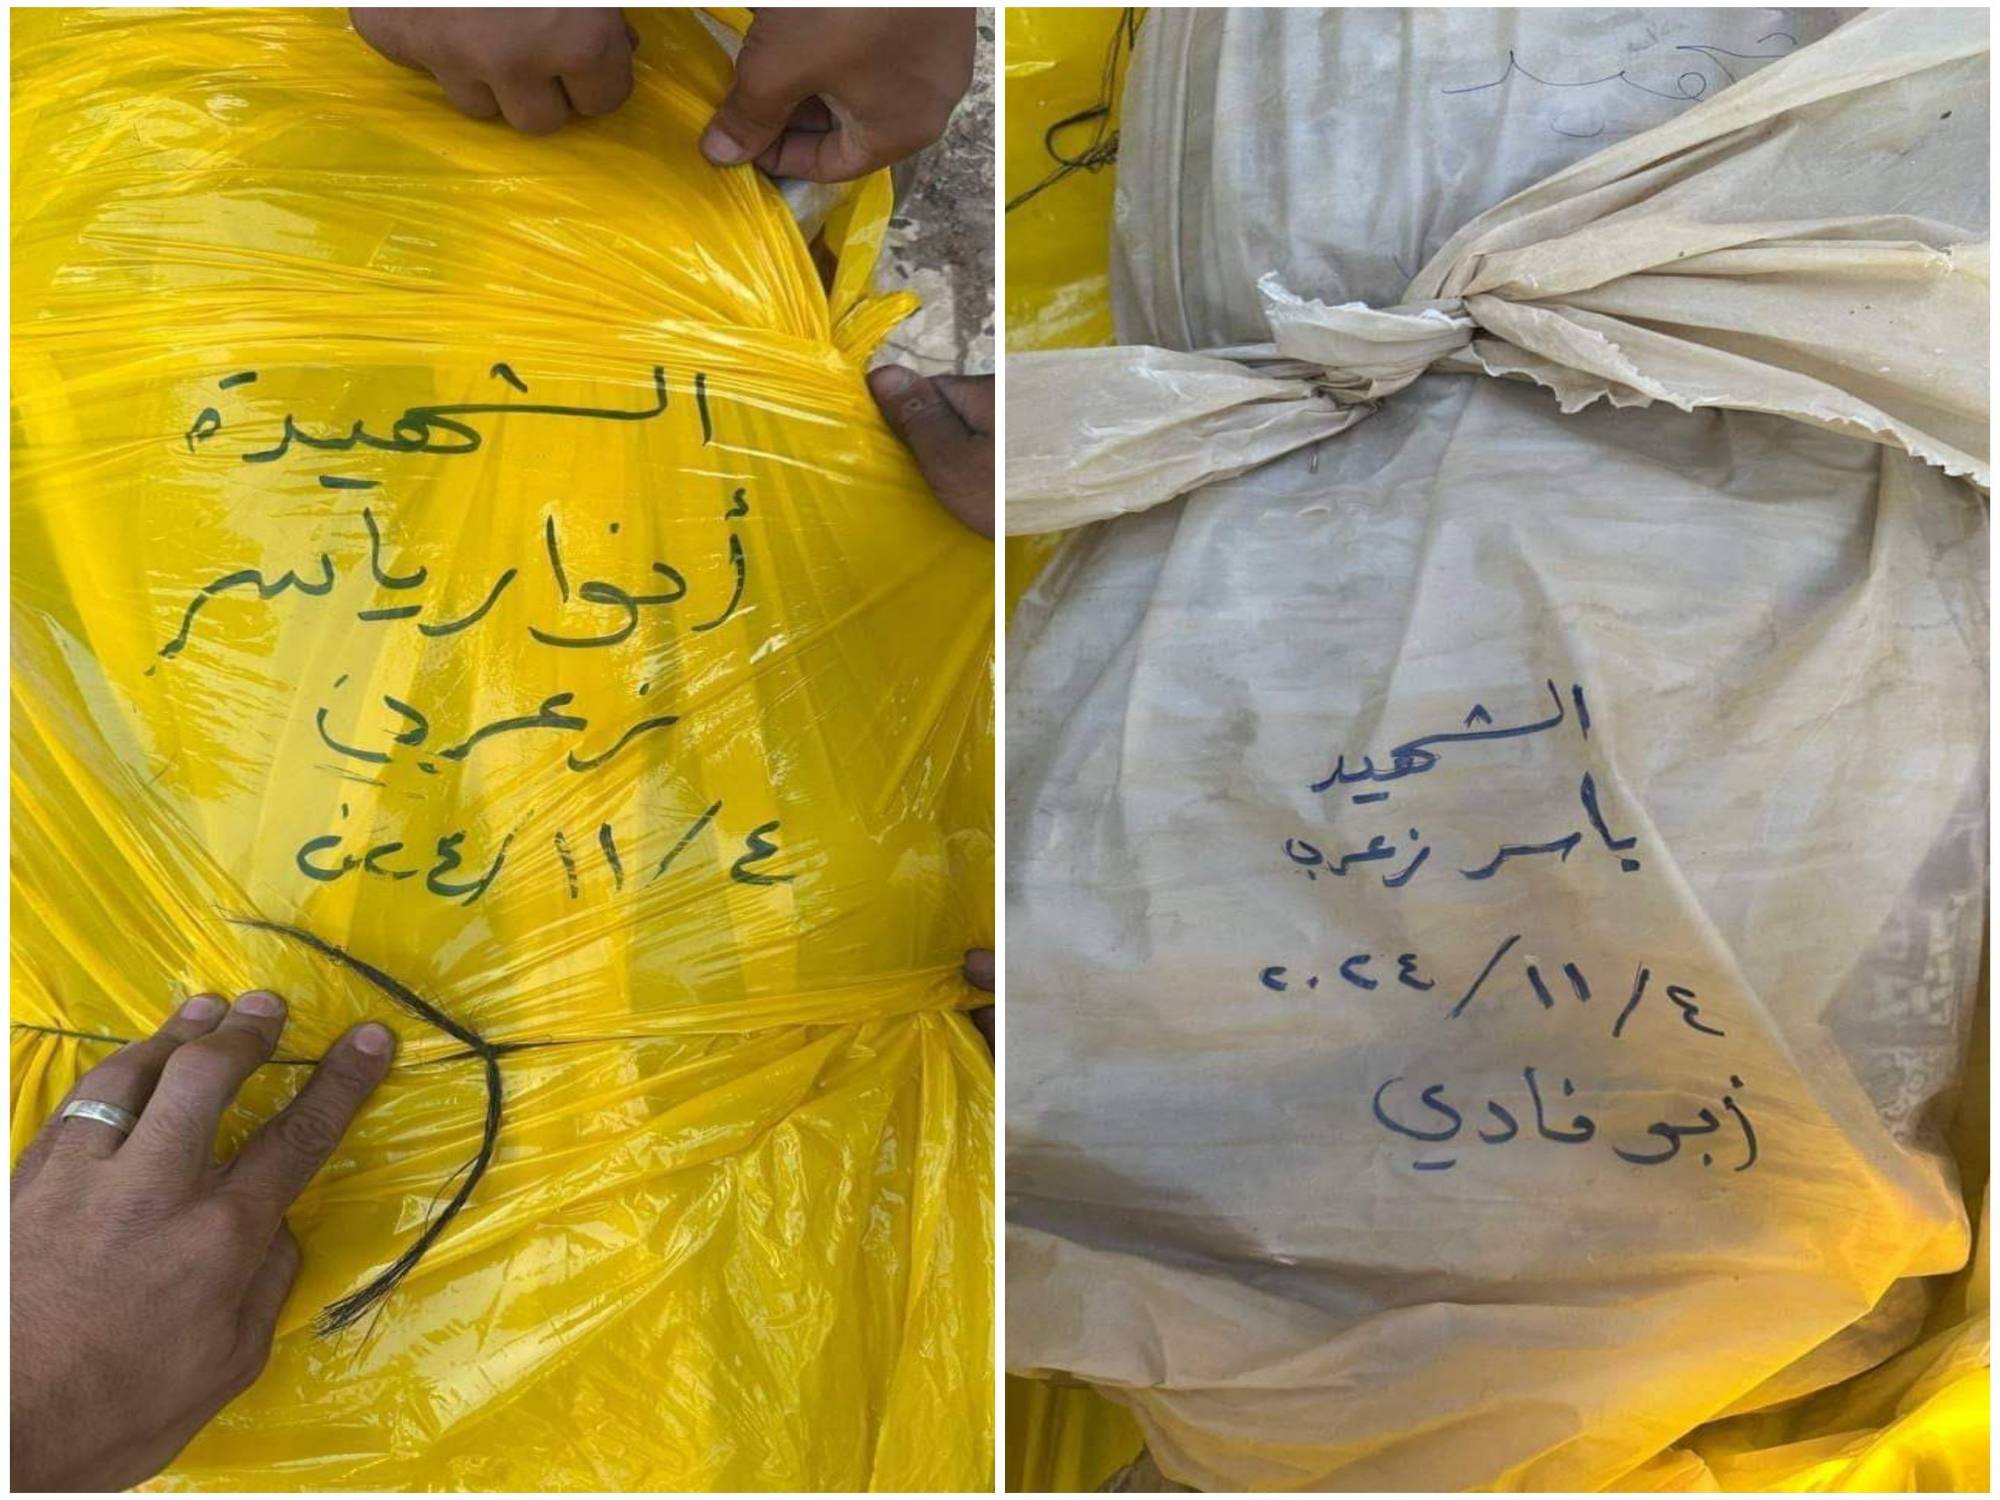 الشهيدة
أنوار ياسر
زعرب
٤/١١/٢٠٢٤
الشهيد
ياسر زعرب
٤/١١/٢٠٢٤
أبو فادي